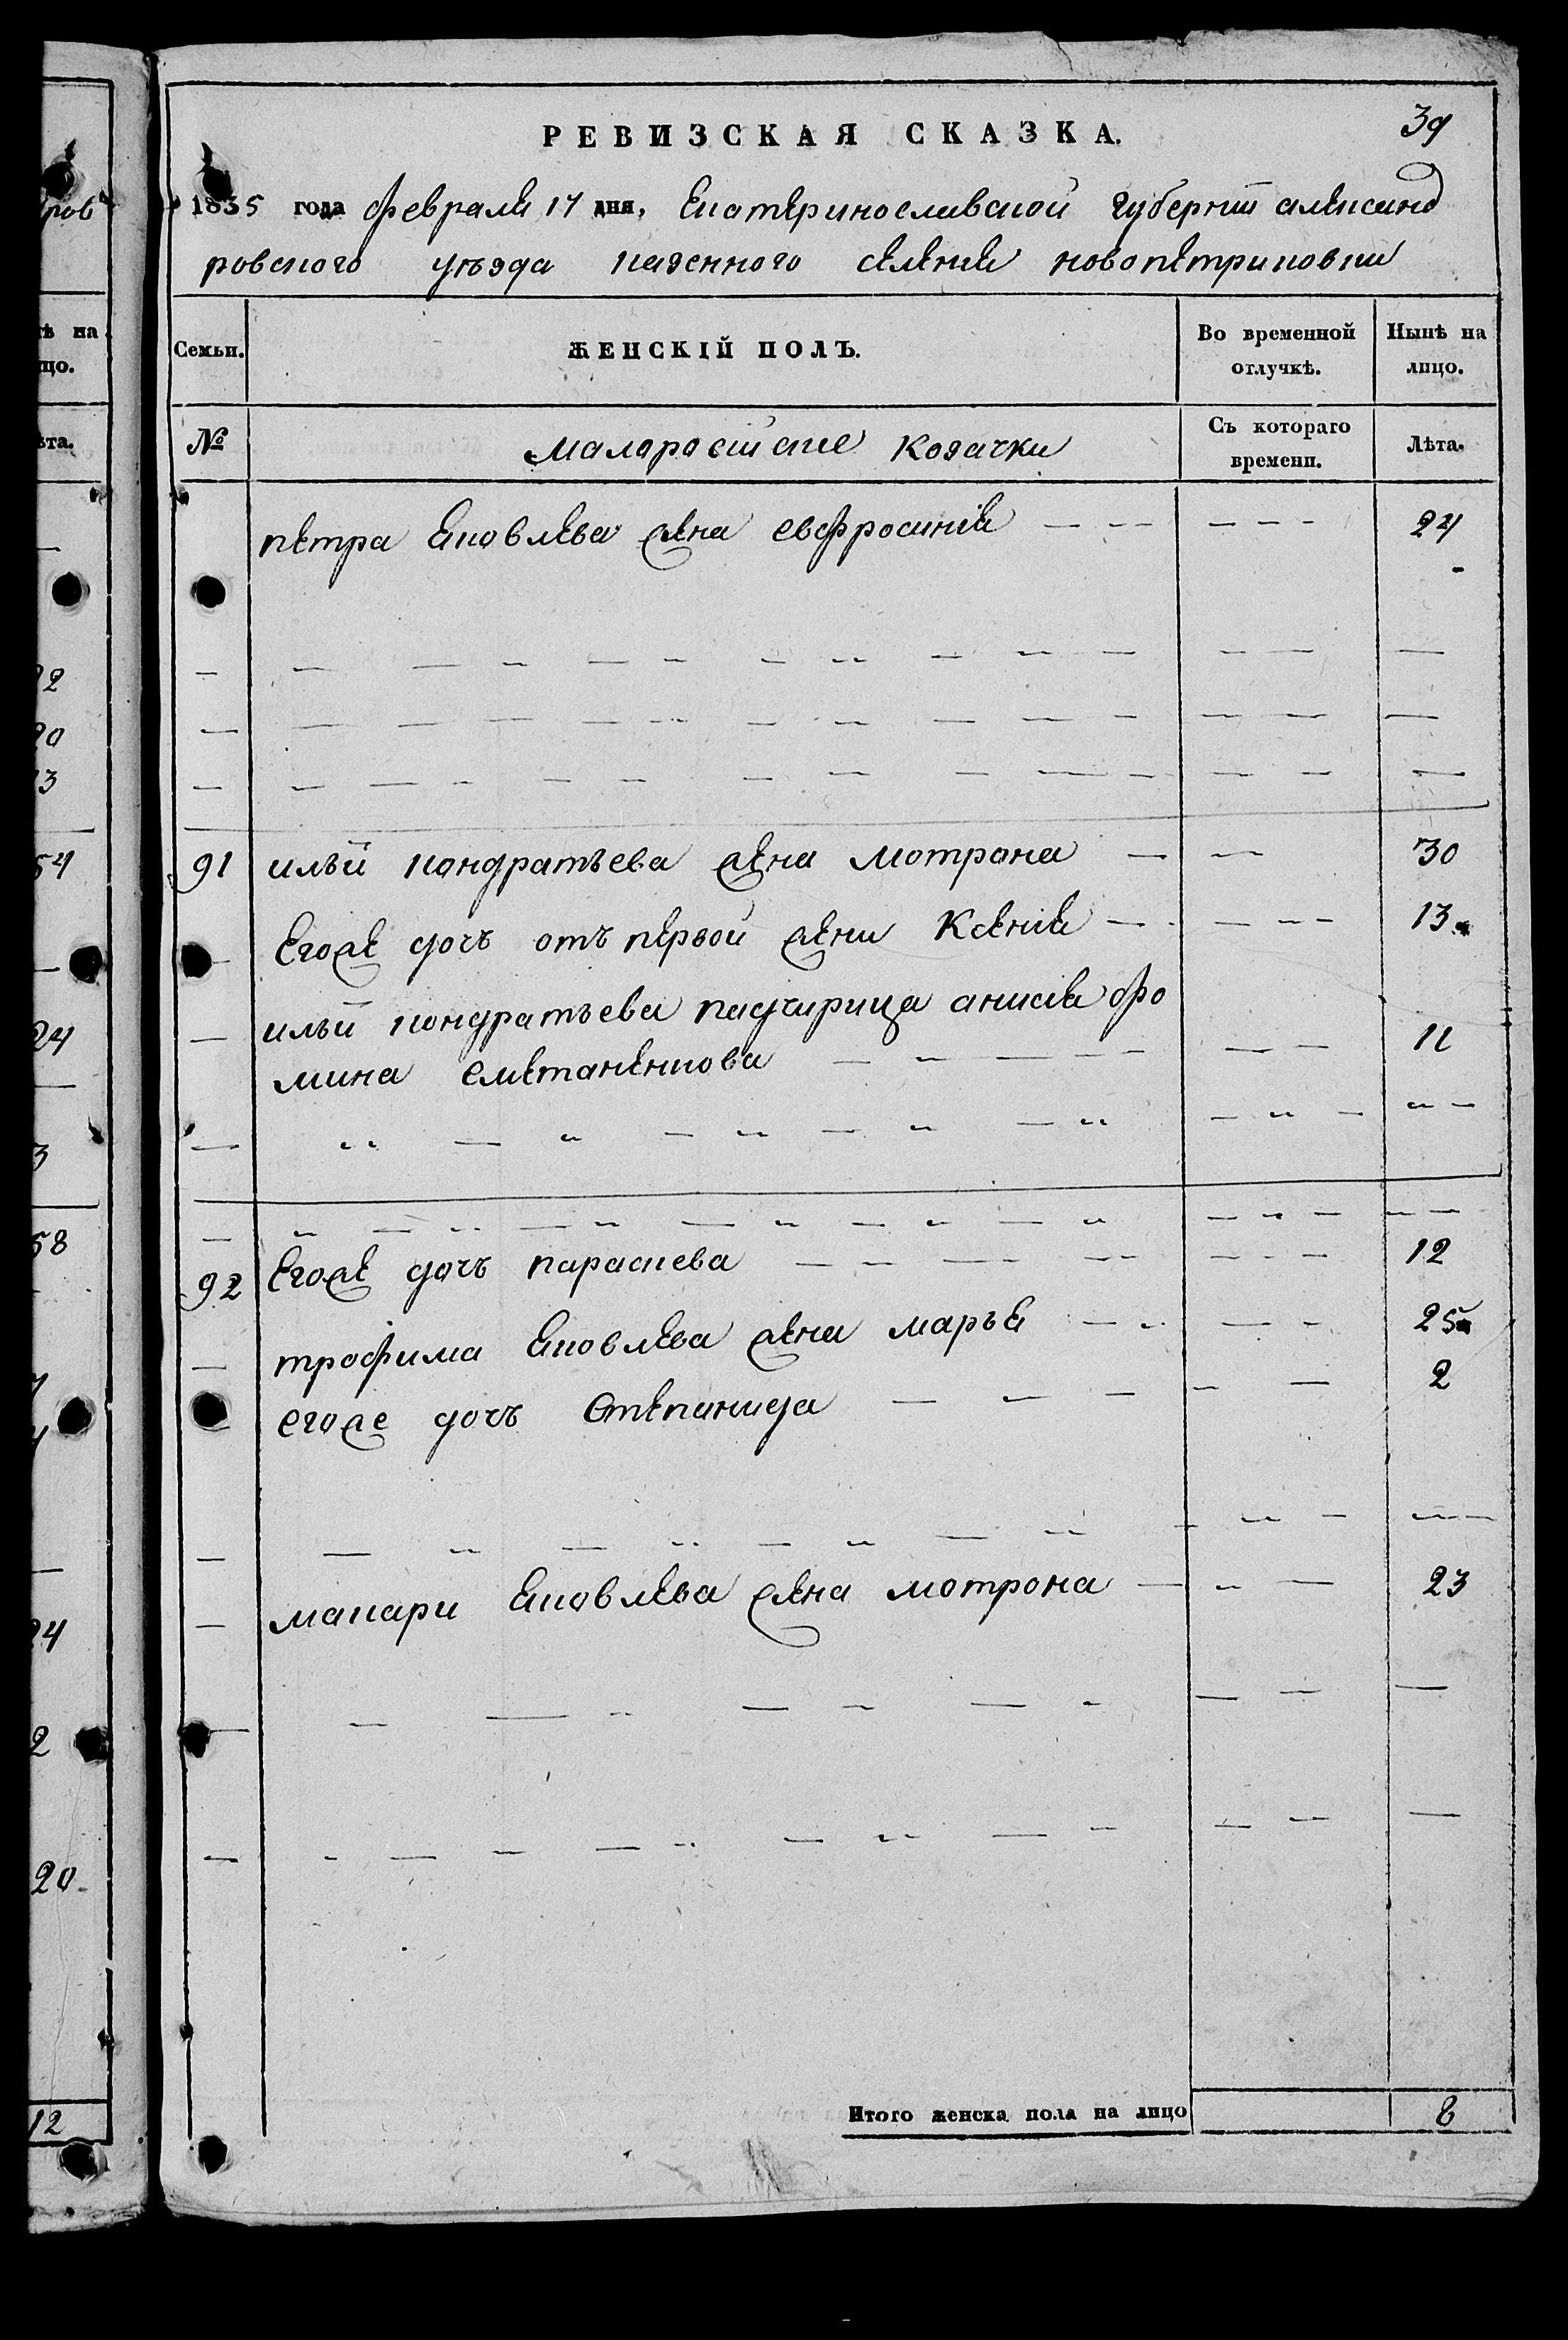 РЕВИЗСКАЯ СКАЗКА.
39
1835 года февраля 17 дня, Екатеринославской губернїи александ
ровского уѣзда казенного селения новопетриковки
Семьи.
ЖЕНСКІЙ ПОЛЪ.
Во временной отлучкѣ.
Нынѣ на лицо.
№
малоросийские козачки
Съ котораго времени.
Лѣта.
петра яковлева жена евфросиния — -- — - - - 24
91 ильи кондратьева жена мотрона — - - 30
егоже дочь отъ первой жени Ксения — - — - - 13
— ильи кондратьева падчирица анисия фо
мина сметаненкова — - — - - — - 11
92 егоже дочь параскева — - — - - — - - 12
— трофима яковлева жена марья — - — - 25
егоже дочь степанида — - — - — 2
— макари яковлева жена мотрона — - — 23
Итого женска пола на лицо 8
ров
ѣ на
цо.
ѣта.
2
20
13
54
24
3
58
24
2
20
12